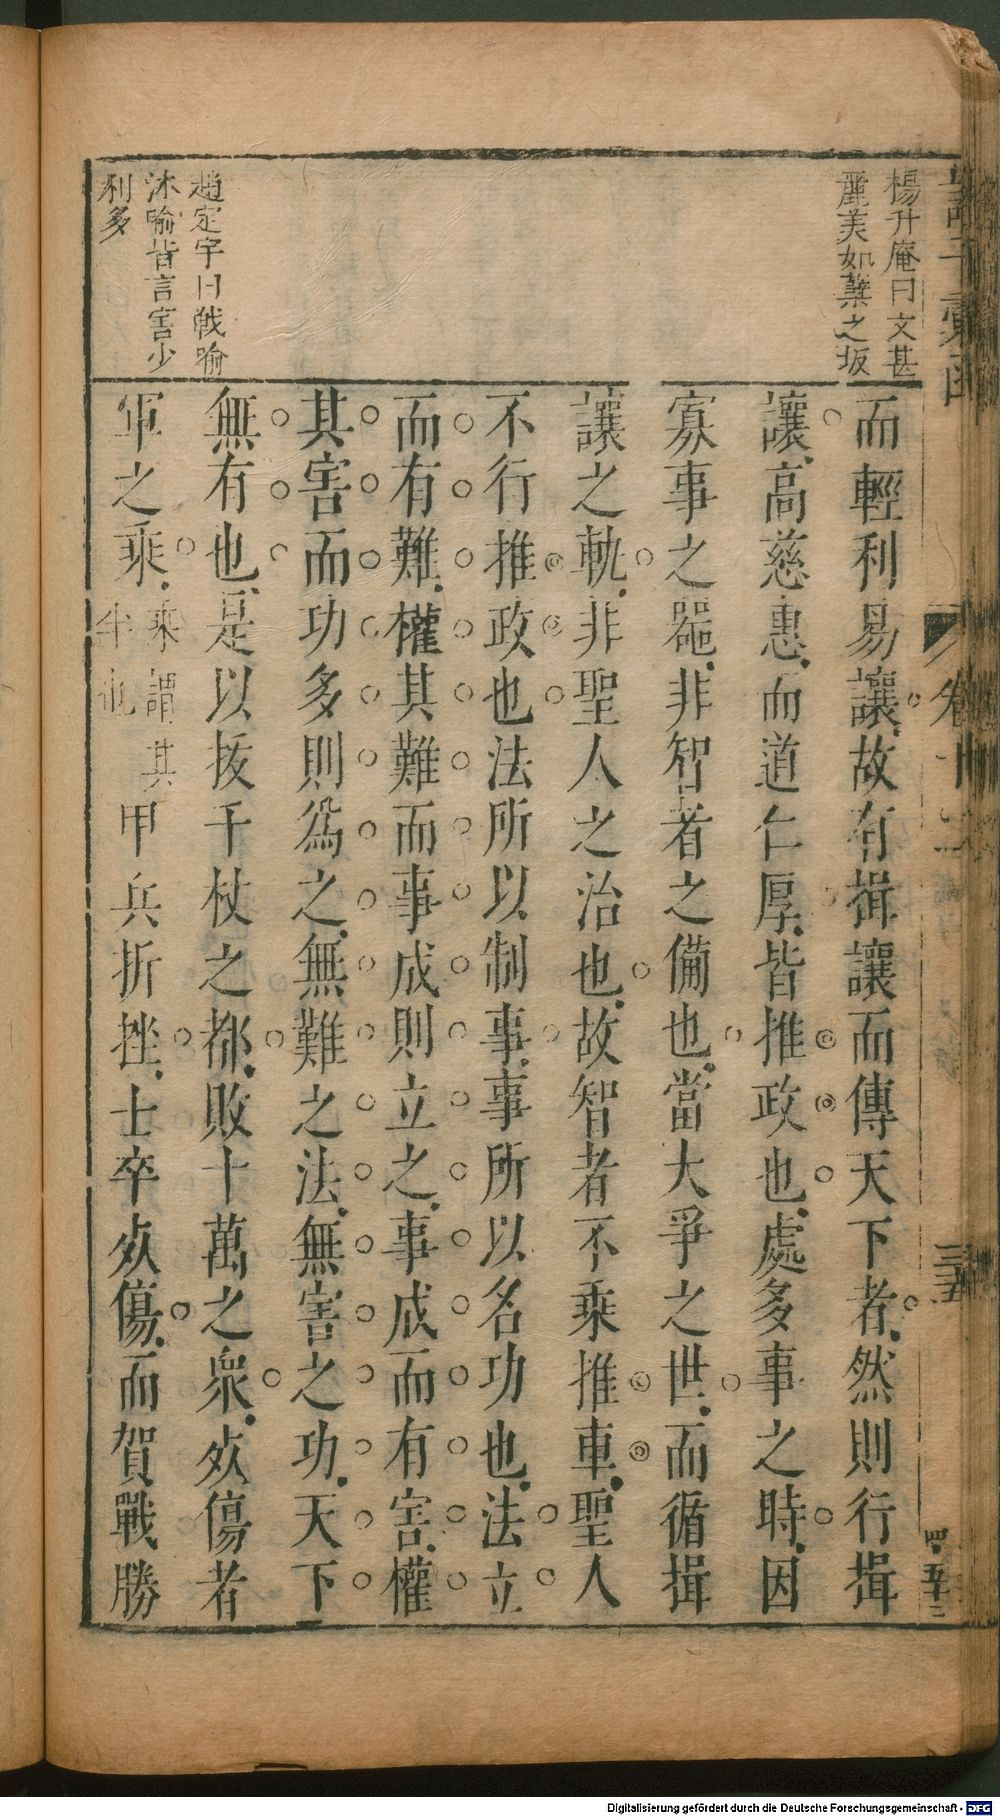 楊升庵曰文甚
麗美如蘂之坂
而輕利易讓故有揖讓而傳天下者然則行揖
讓高慈惠而道仁厚皆推政也處多事之時因
寡事之噐非智者之備也當大爭之世而循揖
讓之軌非聖人之治也故智者不乘推車聖人
不行推政也法所以制事事所以名功也法立
而有難權其難而事成則立之事成而有害權
其害而功多則爲之無難之法無害之功天下
無有也是以拔千杖之都敗十萬之衆㱙傷者
軍之乘乘謂其
半也甲兵折挫士卒㱙傷而賀戰勝
趙定宇曰戰喻
沐喻皆言害少
利多
諸子彙函
卷十二
三五
四五十三
Digitalisierung gefördert durch die Deutsche Forschungsgemeinschaft - DFG